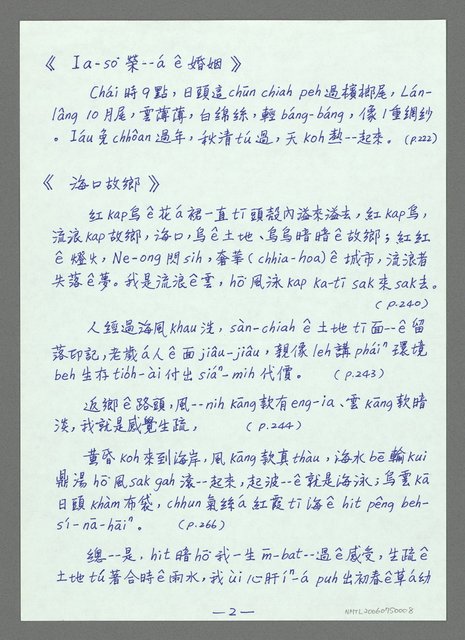 《 Ia-so͘ 榮--á ê 婚姻 》
Chái 時 9 點，日頭這 chūn chiah peh 過檳榔尾，Lán-
lâng 10 月尾，雲薄薄，白綿絲，輕 báng-báng，像 1 重綢紗
。Iáu 免 chhôan 過年，秋清 tú 過，天 koh 熱--起來。(p.222)
《 海口故鄉 》
紅 kap 烏 ê 花 á 裙一直 tī 頭殼內溢來溢去，紅 kap 烏，
流浪 kap 故鄉，海口，烏 ê 土地、烏烏暗暗 ê 故鄉；紅紅
ê 燈火，Ne-ong 閃 sih，奢華 (chhia-hoa) ê 城市，流浪者
失落 ê 夢。我是流浪 ê 雲，hō͘ 風湧 kap ka-tī sak 來 sak 去。
(p.240)
人經過海風 khau 洗，sàn-chiah ê 土地 tī 面--ê 留
落印記，老歲 á 人 ê 面 jiâu-jiâu，親像 leh 講 pháiⁿ 環境
beh 生存 tio̍h-ài 付出 siáⁿ-mih 代價。 (p.243)
返鄉 ê 路頭，風--nih kāng 款有 eng-ia、雲 kāng 款暗
淡，我就是感覺生疏， (p.244)
黃昏 koh 來到海岸，風 kāng 款真 thàu，海水 bē 輸 kui
鼎湯 hō͘ 風 sak gah 滾--起來，起波--ê 就是海湧；烏雲 kā
日頭 khàm 布袋，chhun 氣絲 á 紅霞 tī 海 ê hit pêng beh-
sí-nā-hāiⁿ。 (p.266)
總--是，hit 暗 hō͘ 我一生 m̄-bat--過 ê 感受，生疏 ê
土地 tú 著合時 ê 雨水，我 ùi 心肝 íⁿ-á puh 出初春 ê 草 á 幼
—2—
NMTL20060750008